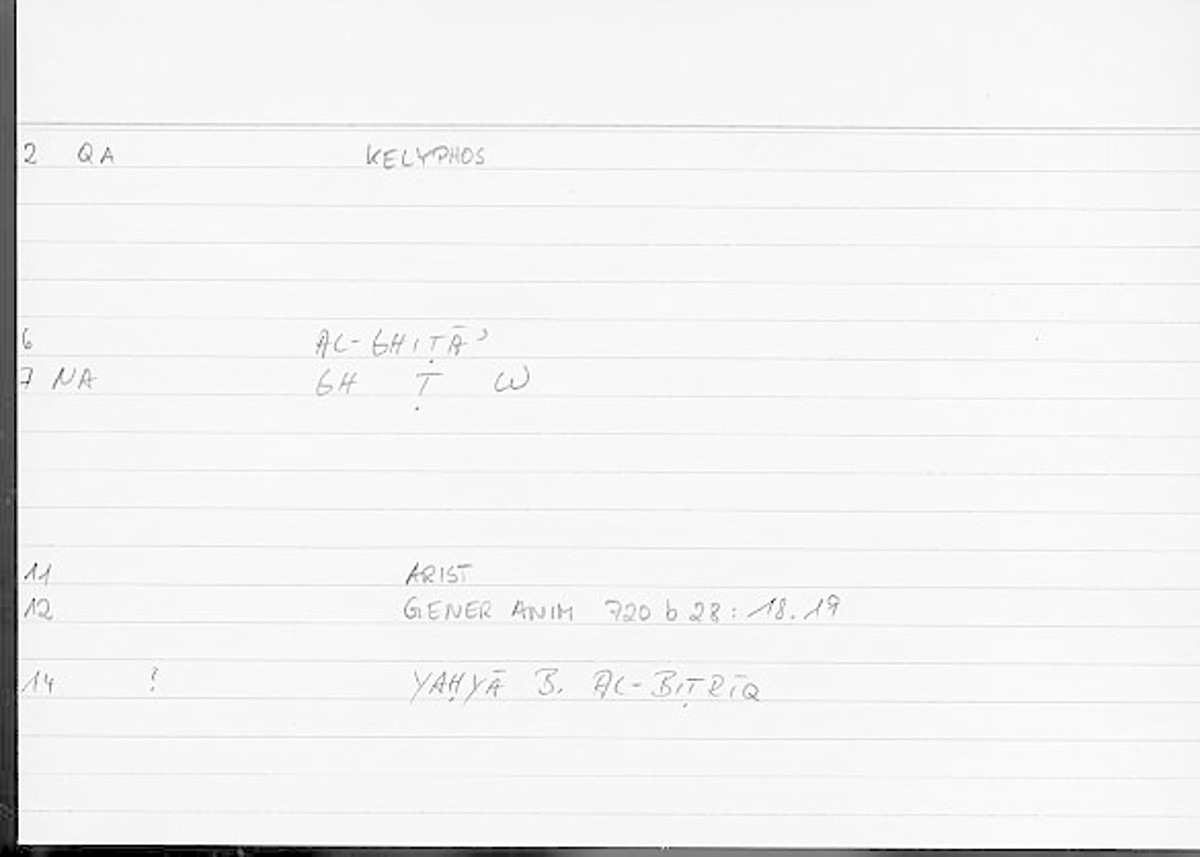 2 QA KELYPHOS
6 AL-GHIṬĀʾ
7 NA GH Ṭ W
11 ARIST
12 GENER ANIM 720 b 28: 18.19
14 ? YAḤYĀ B. AL-BIṬRĪQ